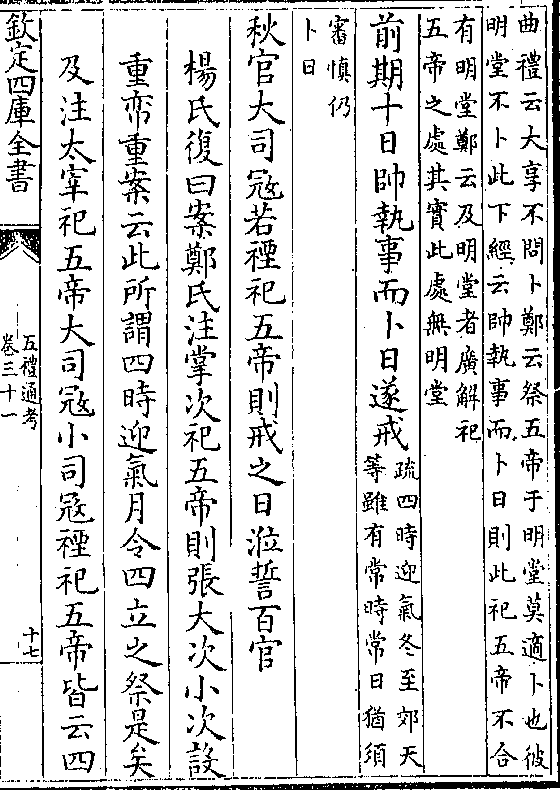 曲禮云大享不問卜鄭云祭五帝于明堂莫適卜也彼
明堂不卜此下經云帥執事而卜日則此祀五帝不合
有明堂鄭云及明堂者廣解祀
五帝之處其實此處無明堂
前期十日帥執事而卜日遂戒
疏四時迎氣冬至郊天
等雖有常時常日猶須
審慎仍
卜日
秋官大司寇若禋祀五帝則戒之日涖誓百官
楊氏復曰案鄭氏注掌次祀五帝則張大次小次設
重帟重案云此所謂四時迎氣月令四立之祭是矣
及注太宰祀五帝大司寇小司寇禋祀五帝皆云四
欽定四庫全書
五禮通考
卷三十一
十七